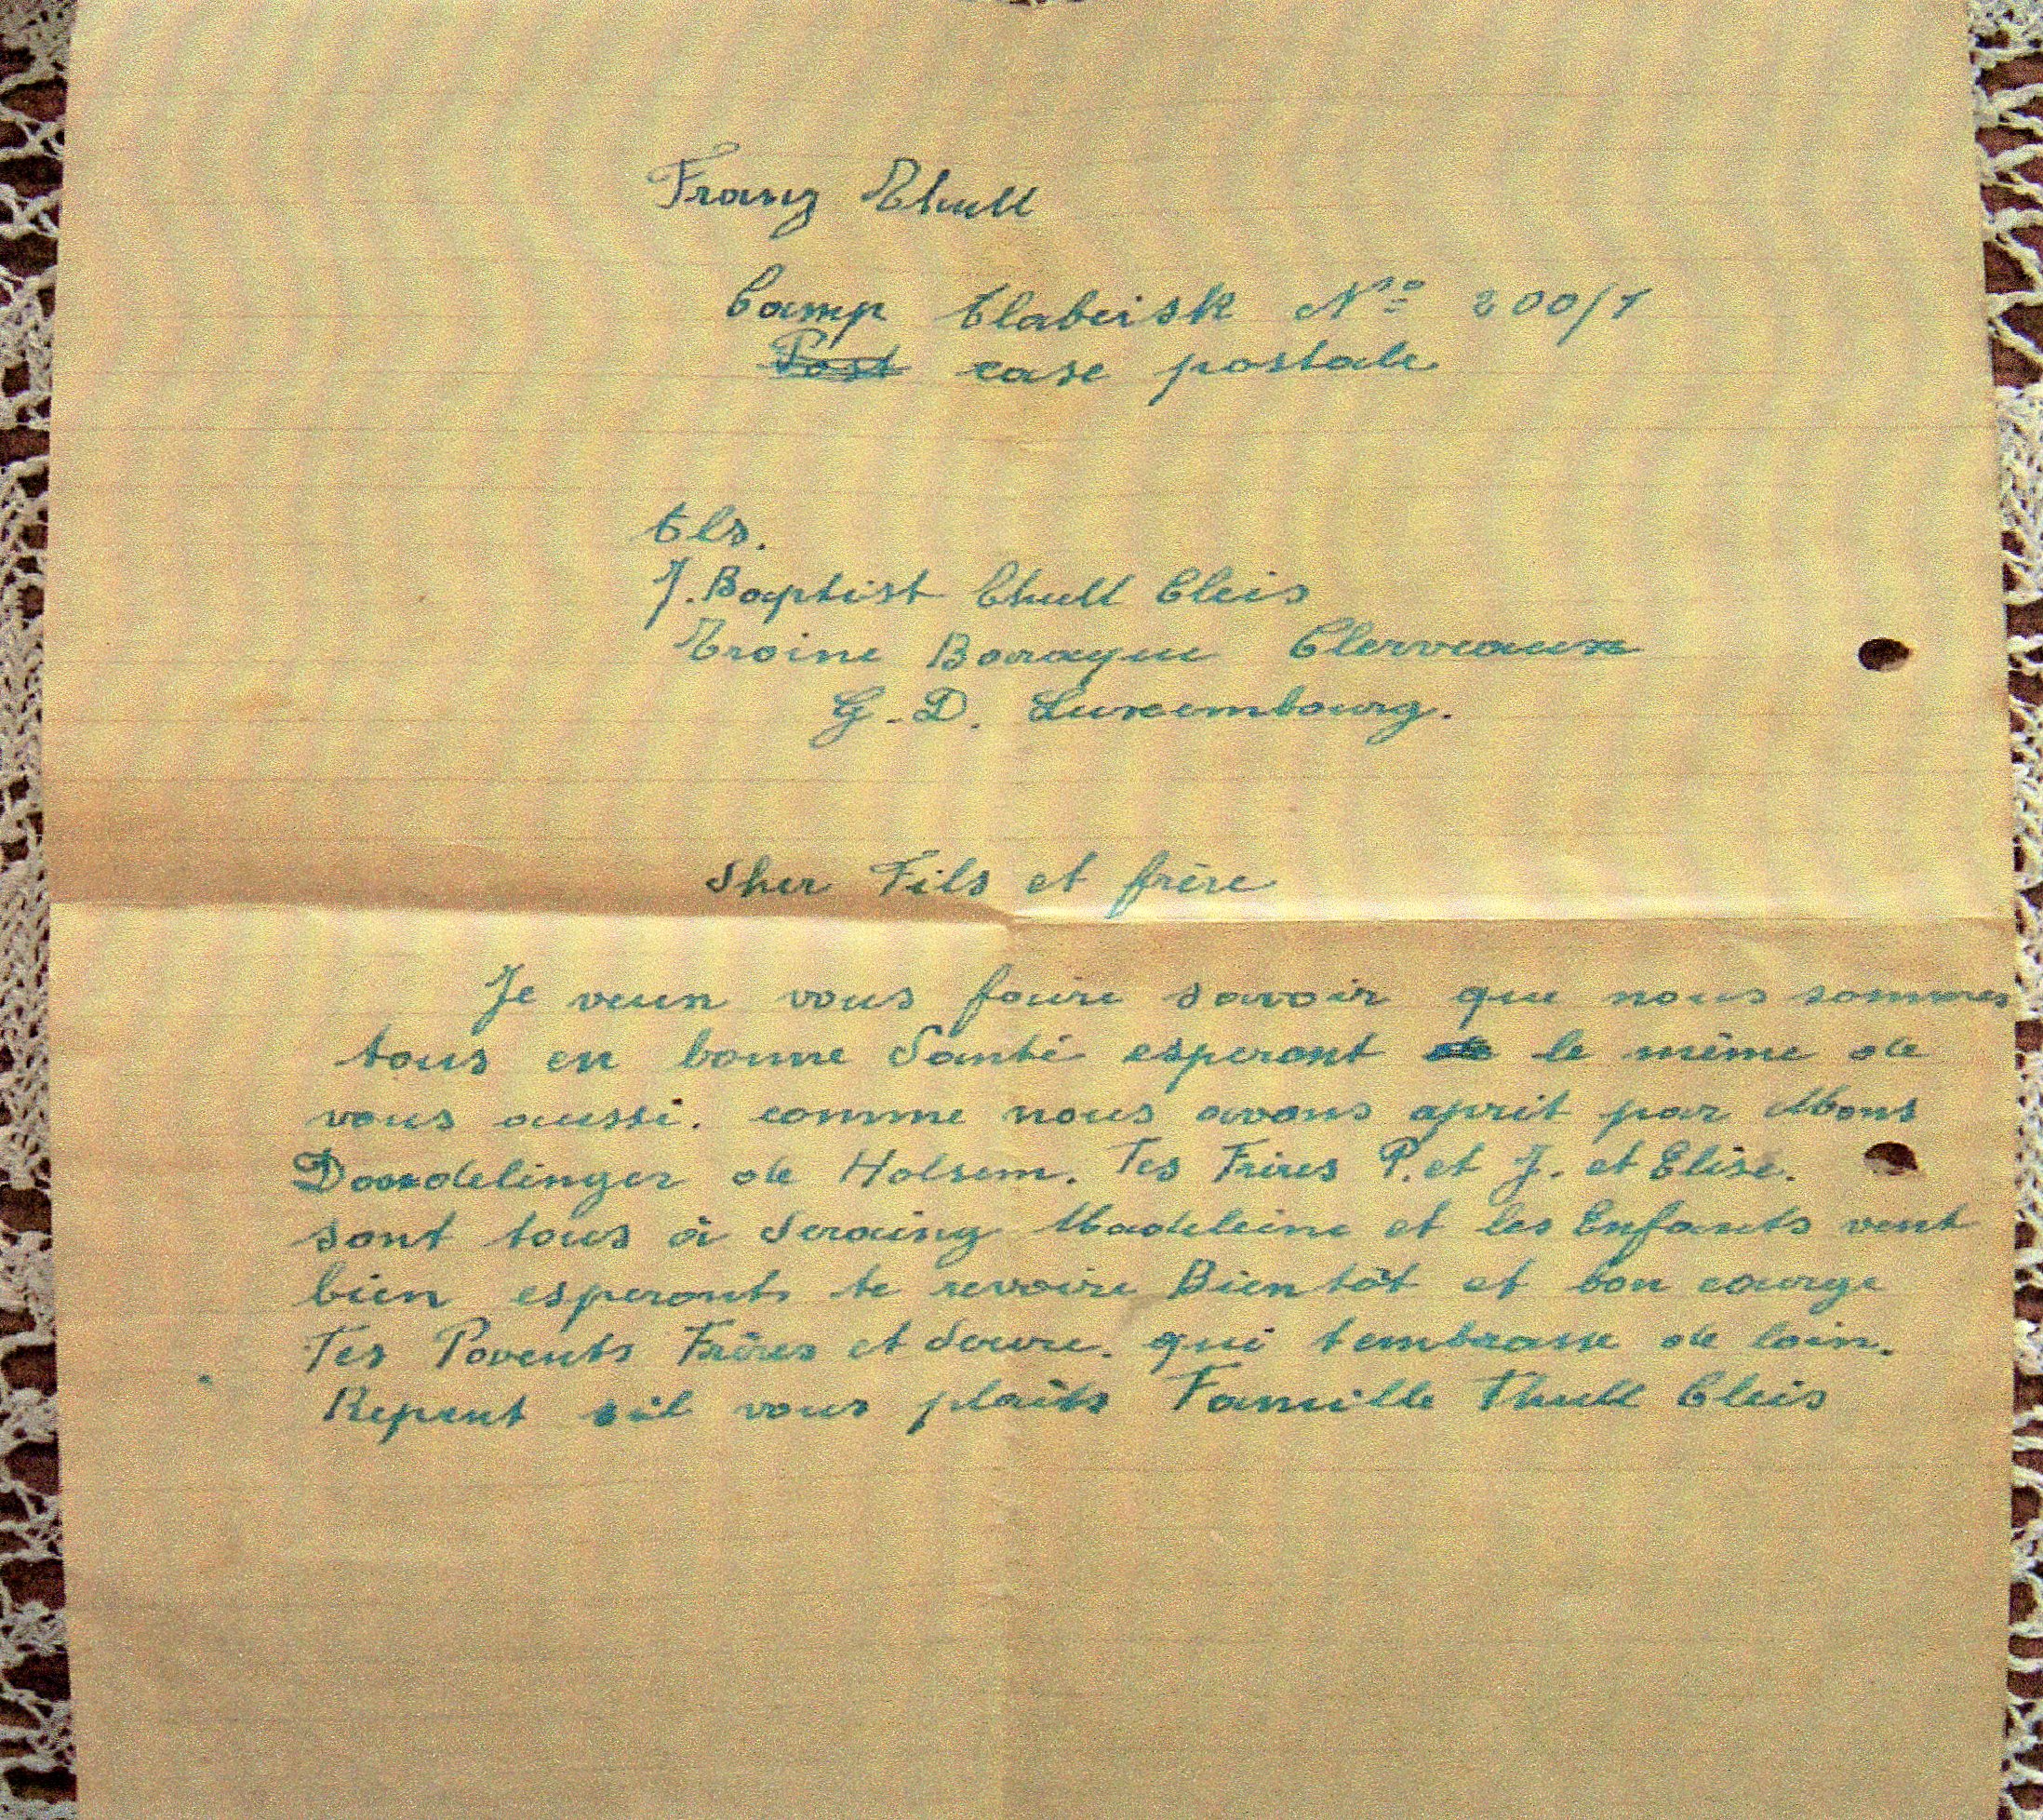 Franz Thull
Camp Tlabeisk No 200/1
Post case postale
Els.
J. Baptist Thull Cleis
Troine Baraque Clerveaux
G. D. Luxembourg.
Sher Fils et frère
Je veux vous faire savoir que nous sommes
tous en bonne Santé esperant le même de
vous aussi. comme nous avons aprit par Mons
Dondelinger de Holsem. Tes Frères P. et J. et Elise.
sont tous à Seraing Madeleine et les Enfants vent
bien esperants te revoire Bientôt et bon courge
Tes Parents Frères et Seure. qui tembrasse de loin.
Repent sil vous plaits Famille Thull Cleis